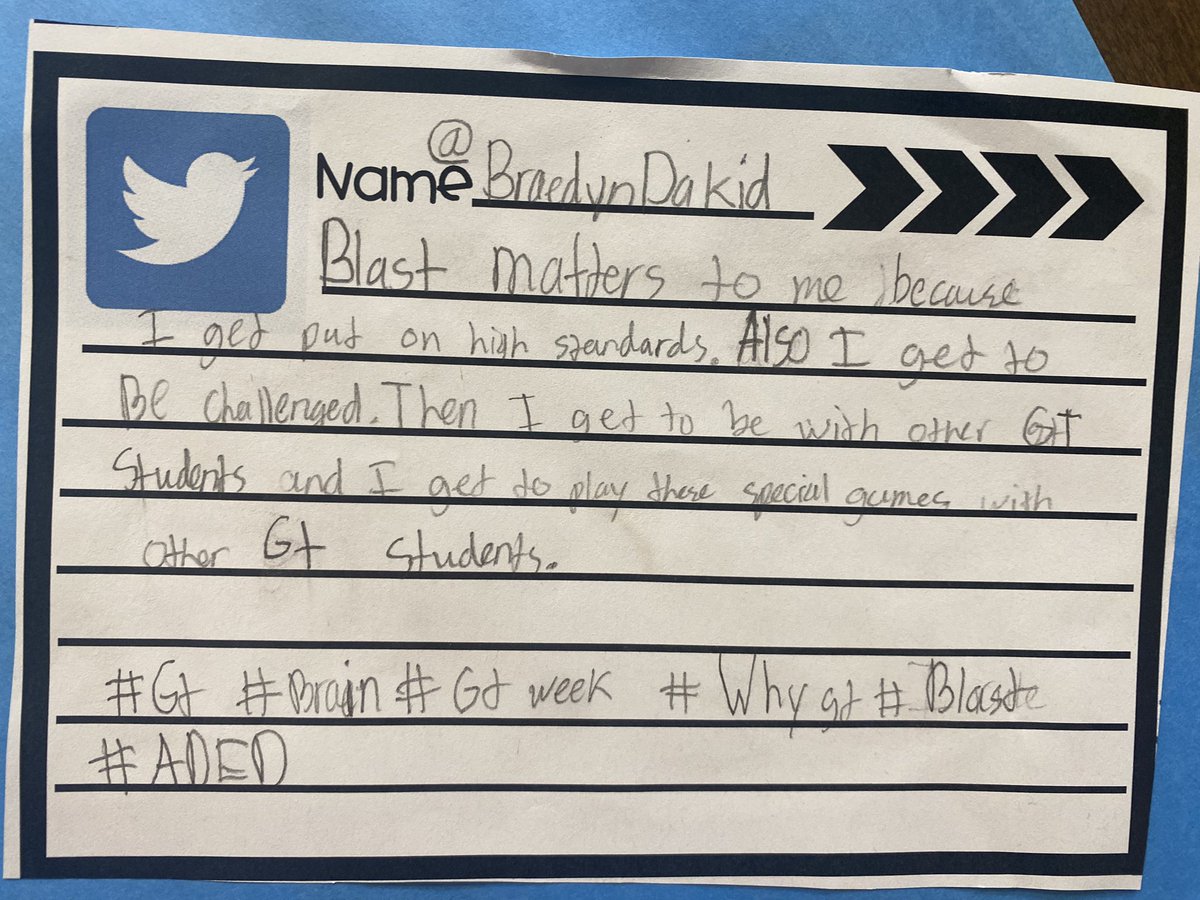 @
Name BraedynDakid
Blast matters to me because
I get put on high standards. Also I get to
Be challenged. Then I get to be with other GT
Students and I get to play these special games with
other Gt students.
#Gt #Brain # Gt week # Why gt # Blaste
#ADED